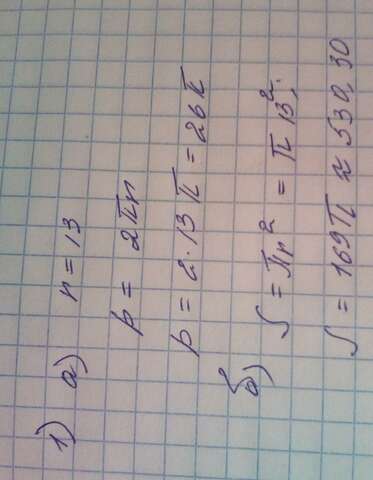 1) а) r = 13
p = 2πr
p = 2 · 13 π = 26π
б) S = πr² = π 13².
S = 169π ≈ 530,30